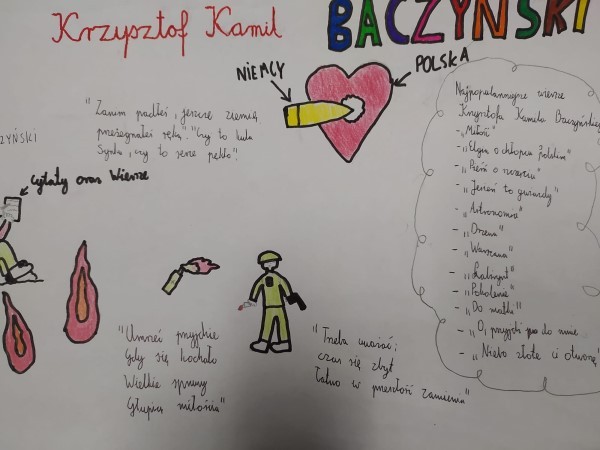 Krzysztof Kamil BACZYŃSKI
NIEMCY
POLSKA
"Zanim padłeś, jeszcze ziemię
przeżegnałeś ręką" "Czy to kula
Synku, czy to serce pękło".
ZYŃSKI
cytaty oraz Wiersze
Najpopularniejsze wiersze
Krzysztofa Kamila Baczyńskiego
- „Miłość"
- „Elegia o chłopcu polskim"
- „Pieśń o szczęściu"
- „Jesteś to gwiazdy"
- „Astronomia"
- „Oczom"
- „Warszawa"
- „Labirynt"
- „Pokolenie"
- „Do matki"
- „O, przyjdź do mnie
- „Niebo złote ci otworzę"
"Umrzeć przyjdzie
Gdy się kochało
Wielkie sprawy
Głupią miłością"
"Trzeba uważać;
czas się zbyt
łatwo w przeszłość zamienia"